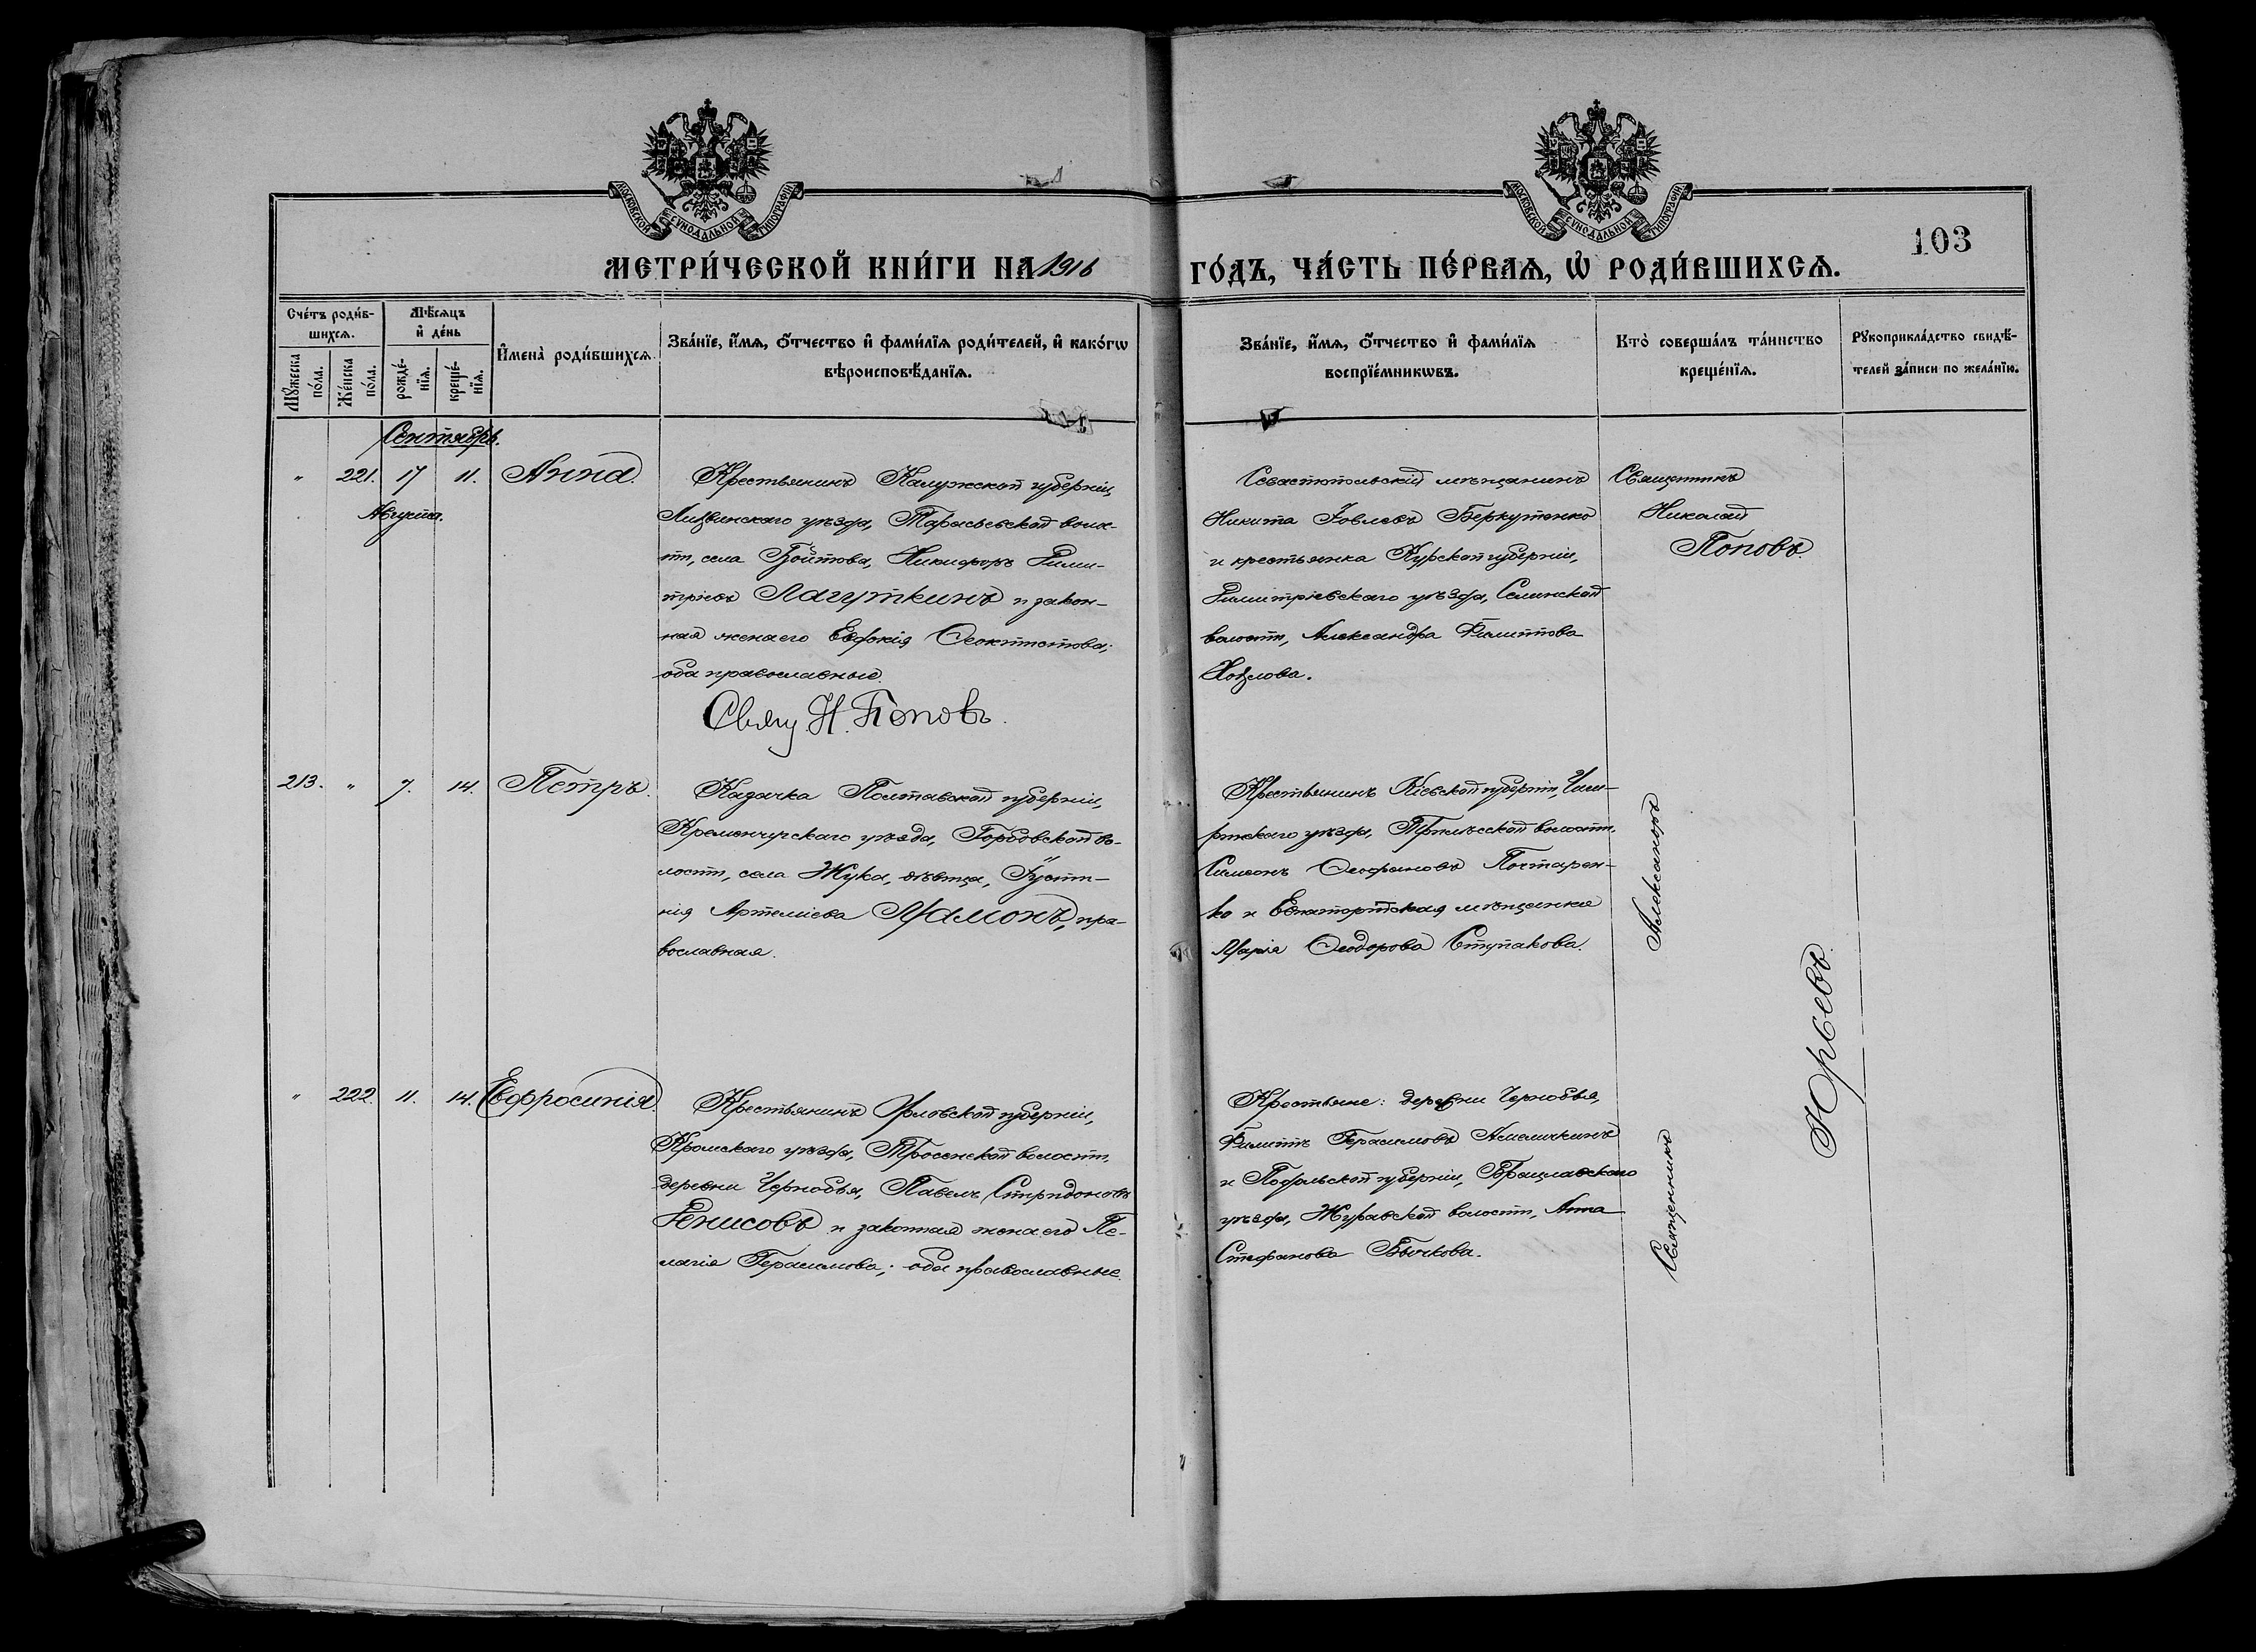 МОСКОВСКОЙ СѴНОДАЛЬНОЙ ТИПОГРАФІИ
МОСКОВСКОЙ СѴНОДАЛЬНОЙ ТИПОГРАФІИ
103
МЕТРИ́ЧЕСКОЙ КНИ́ГИ НА 1916 ГО́ДЪ, ЧА́СТЬ ПЕ́РВАѦ, Ѽ РОДИ́ВШИХСѦ.
Сче́тъ роди́в-
шихсѧ.
Мꙋ́жеска по́ла.
Же́нска по́ла.
Мѣ́сѧцъ
и҆ де́нь
рожде́-
нїѧ.
креще́-
нїѧ.
И҆мена̀ роди́вшихсѧ.
Зва́нїе, и҆́мѧ, ѻ҆́тчество и҆ фами́лїѧ роди́телей, и҆ како́гѡ
вѣроисповѣ́данїѧ.
Зва́нїе, и҆́мѧ, ѻ҆́тчество и҆ фами́лїѧ
воспрїе́мникѡвъ.
Кто̀ соверша́лъ та́инство
креще́нїѧ.
Рꙋкоприкла́дство свидѣ́-
телей за́писи по жела́нїю.
Сентябрь.
" 221. 17 11. Анна.
Августа.
Крестьянинъ Калужской губерніи,
Лихвинскаго уѣзда, волос-
ти, села Никифоръ Дими-
тріевъ Лагуткинъ и закон-
ная жена его Евдокія Ѳеоктистова;
оба православные.
Свящ. Н. Поповъ.
Севастопольскій мѣщанинъ
Никита Іовлевъ Беркутенко
и крестьянка Курской губерніи,
Димитріевскаго уѣзда, Селинской
волости, Александра Филиппова
Козлова.
Священникъ
Николай
Поповъ.
213. " 7. 14. Петръ.
Казачка Полтавской губерніи,
Кременчугскаго уѣзда, во-
лости, села Жука, дѣвица, Густи-
нія Артеміева Мамонъ, пра-
вославная.
Крестьянинъ Кіевской губерніи, Чиги-
ринскаго уѣзда, волости,
Симеонъ Ѳеофановъ
ко и Евпаторійская мѣщанка
Марія Ѳеодорова Ступакова.
" 222. 11. 14. Евфросинія.
Крестьянинъ Орловской губерніи,
Кромскаго уѣзда, Тросенской волости,
деревни Чернобья, Павелъ Спиридоновъ
Денисовъ и законная жена его Пе-
лагія Герасимова; оба православные.
Крестьяне: деревни Чернобья,
Филиппъ Герасимовъ Амеличкинъ
и Подольской губерніи, Брацлавскаго
уѣзда, Журавской волости, Анна
Стефанова Бычкова.
Священникъ Александръ
Юрьевъ.